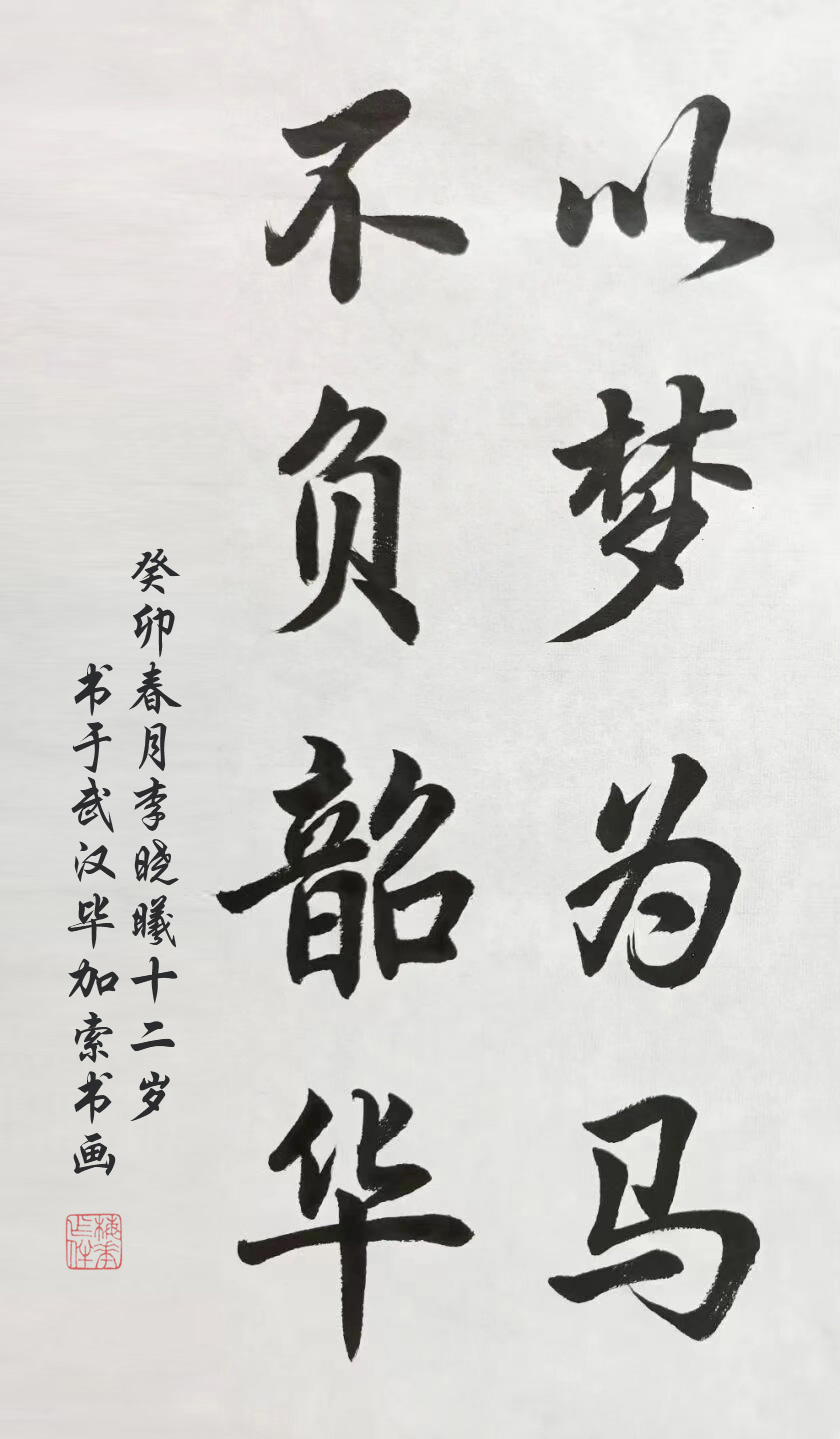 以梦为马
不负韶华
癸卯春月李晓曦十二岁
书于武汉毕加索书画